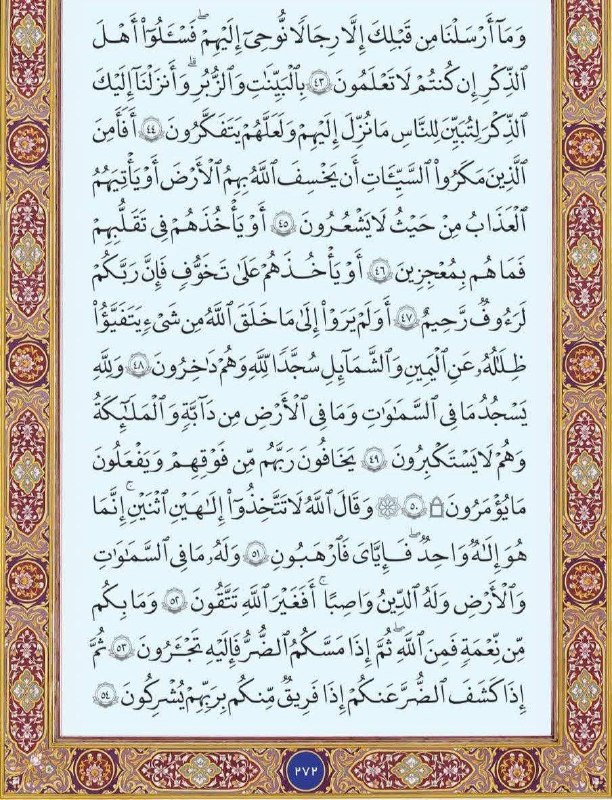 وَمَآ أَرْسَلْنَا مِن قَبْلِكَ إِلَّا رِجَالًا نُّوحِىٓ إِلَيْهِمْ ۖ فَسْـَٔلُوٓا۟ أَهْلَ
ٱلذِّكْرِ إِن كُنتُمْ لَا تَعْلَمُونَ ٤٣ بِٱلْبَيِّنَـٰتِ وَٱلزُّبُرِ ۗ وَأَنزَلْنَآ إِلَيْكَ
ٱلذِّكْرَ لِتُبَيِّنَ لِلنَّاسِ مَا نُزِّلَ إِلَيْهِمْ وَلَعَلَّهُمْ يَتَفَكَّرُونَ ٤٤ أَفَأَمِنَ
ٱلَّذِينَ مَكَرُوا۟ ٱلسَّيِّـَٔاتِ أَن يَخْسِفَ ٱللَّهُ بِهِمُ ٱلْأَرْضَ أَوْ يَأْتِيَهُمُ
ٱلْعَذَابُ مِنْ حَيْثُ لَا يَشْعُرُونَ ٤٥ أَوْ يَأْخُذَهُمْ فِى تَقَلُّبِهِمْ
فَمَا هُم بِمُعْجِزِينَ ٤٦ أَوْ يَأْخُذَهُمْ عَلَىٰ تَخَوُّفٍ فَإِنَّ رَبَّكُمْ
لَرَءُوفٌ رَّحِيمٌ ٤٧ أَوَلَمْ يَرَوْا۟ إِلَىٰ مَا خَلَقَ ٱللَّهُ مِن شَىْءٍ يَتَفَيَّؤُا۟
ظِلَـٰلُهُۥ عَنِ ٱلْيَمِينِ وَٱلشَّمَآئِلِ سُجَّدًا لِّلَّهِ وَهُمْ دَٰخِرُونَ ٤٨ وَلِلَّهِ
يَسْجُدُ مَا فِى ٱلسَّمَـٰوَٰتِ وَمَا فِى ٱلْأَرْضِ مِن دَآبَّةٍ وَٱلْمَلَـٰٓئِكَةُ
وَهُمْ لَا يَسْتَكْبِرُونَ ٤٩ يَخَافُونَ رَبَّهُم مِّن فَوْقِهِمْ وَيَفْعَلُونَ
مَا يُؤْمَرُونَ ۩ ٥٠ ۞ وَقَالَ ٱللَّهُ لَا تَتَّخِذُوٓا۟ إِلَـٰهَيْنِ ٱثْنَيْنِ ۖ إِنَّمَا
هُوَ إِلَـٰهٌ وَٰحِدٌ ۖ فَإِيَّـٰىَ فَٱرْهَبُونِ ٥١ وَلَهُۥ مَا فِى ٱلسَّمَـٰوَٰتِ
وَٱلْأَرْضِ وَلَهُ ٱلدِّينُ وَاصِبًا ۚ أَفَغَيْرَ ٱللَّهِ تَتَّقُونَ ٥٢ وَمَا بِكُم
مِّن نِّعْمَةٍ فَمِنَ ٱللَّهِ ۖ ثُمَّ إِذَا مَسَّكُمُ ٱلضُّرُّ فَإِلَيْهِ تَجْـَٔرُونَ ٥٣ ثُمَّ
إِذَا كَشَفَ ٱلضُّرَّ عَنكُمْ إِذَا فَرِيقٌ مِّنكُم بِرَبِّهِمْ يُشْرِكُونَ ٥٤
٢٧٢